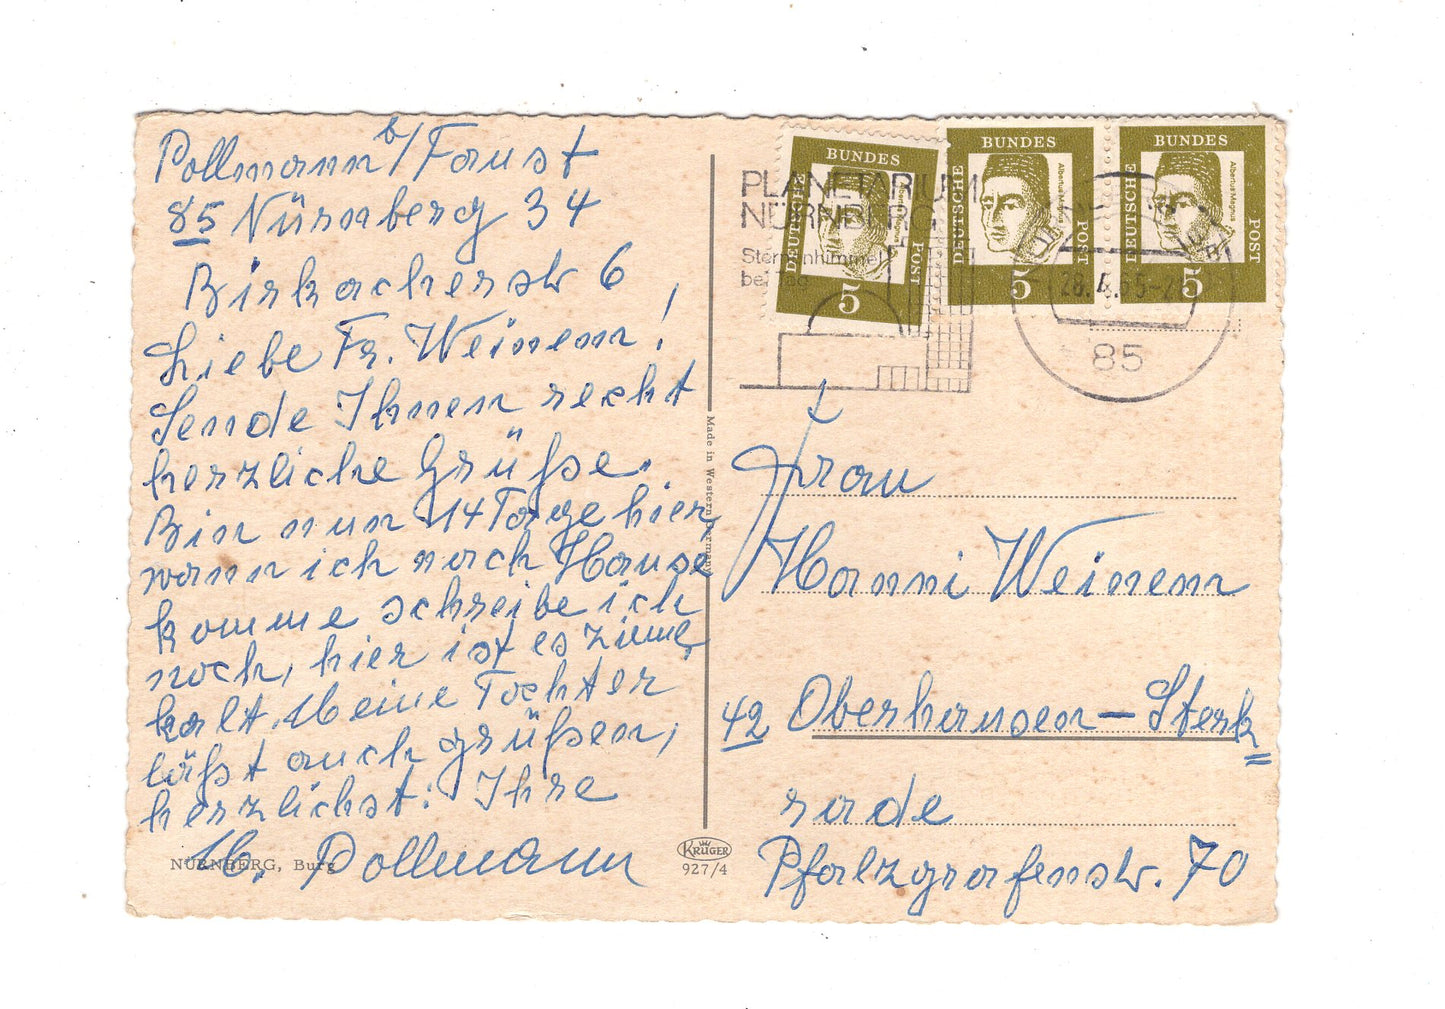 Pollmann b/Faust
85 Nürnberg 34
Birkacherstr 6
Liebe Fr. Weinem!
Sende Ihnen recht
herzliche Grüße.
Bin nun 14 Tage hier,
wann ich nach Hause
komme schreibe ich
noch, hier ist es zieml.
kalt. Meine Tochter
läßt auch grüßen,
herzlichst: Ihre
M. Pollmann
NÜRNBERG, Burg
KRÜGER
927/4
Made in Western Germany
PLANETARIUM
NÜRNBERG
Sternenhimmel
bei Tag
BUNDES
DEUTSCHE
POST
5
BUNDES
DEUTSCHE
Albertus Magnus
POST
5
BUNDES
DEUTSCHE
Albertus Magnus
POST
5
85
Frau
Hanni Weinem
42 Oberhausen-Sterk=
rade
Pfalzgrafenstr. 70